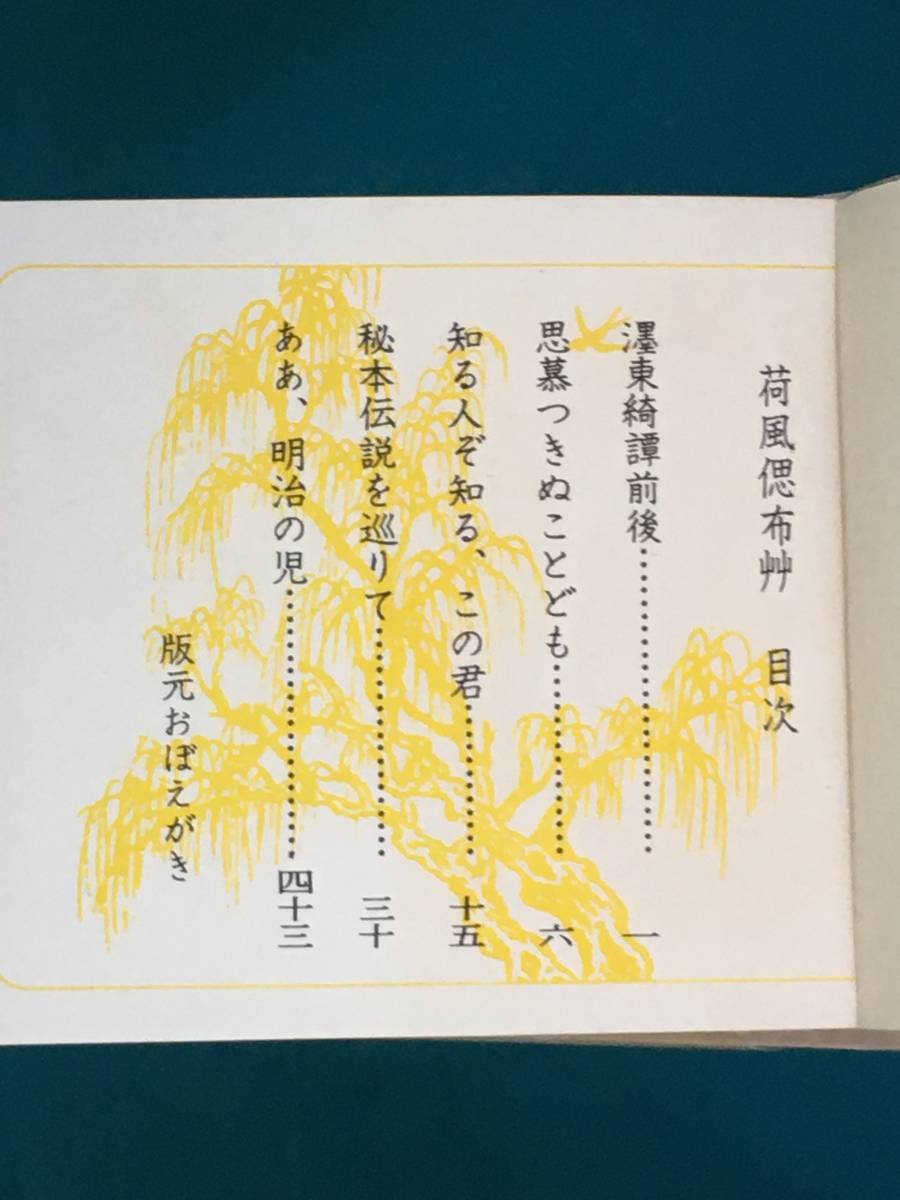 荷風偲布艸　目次
濹東綺譚前後……………………一
思慕つきぬことども……………六
知る人ぞ知る、この君…………十五
秘本伝説を巡りて………………三十
ああ、明治の児…………………四十三
版元おぼえがき